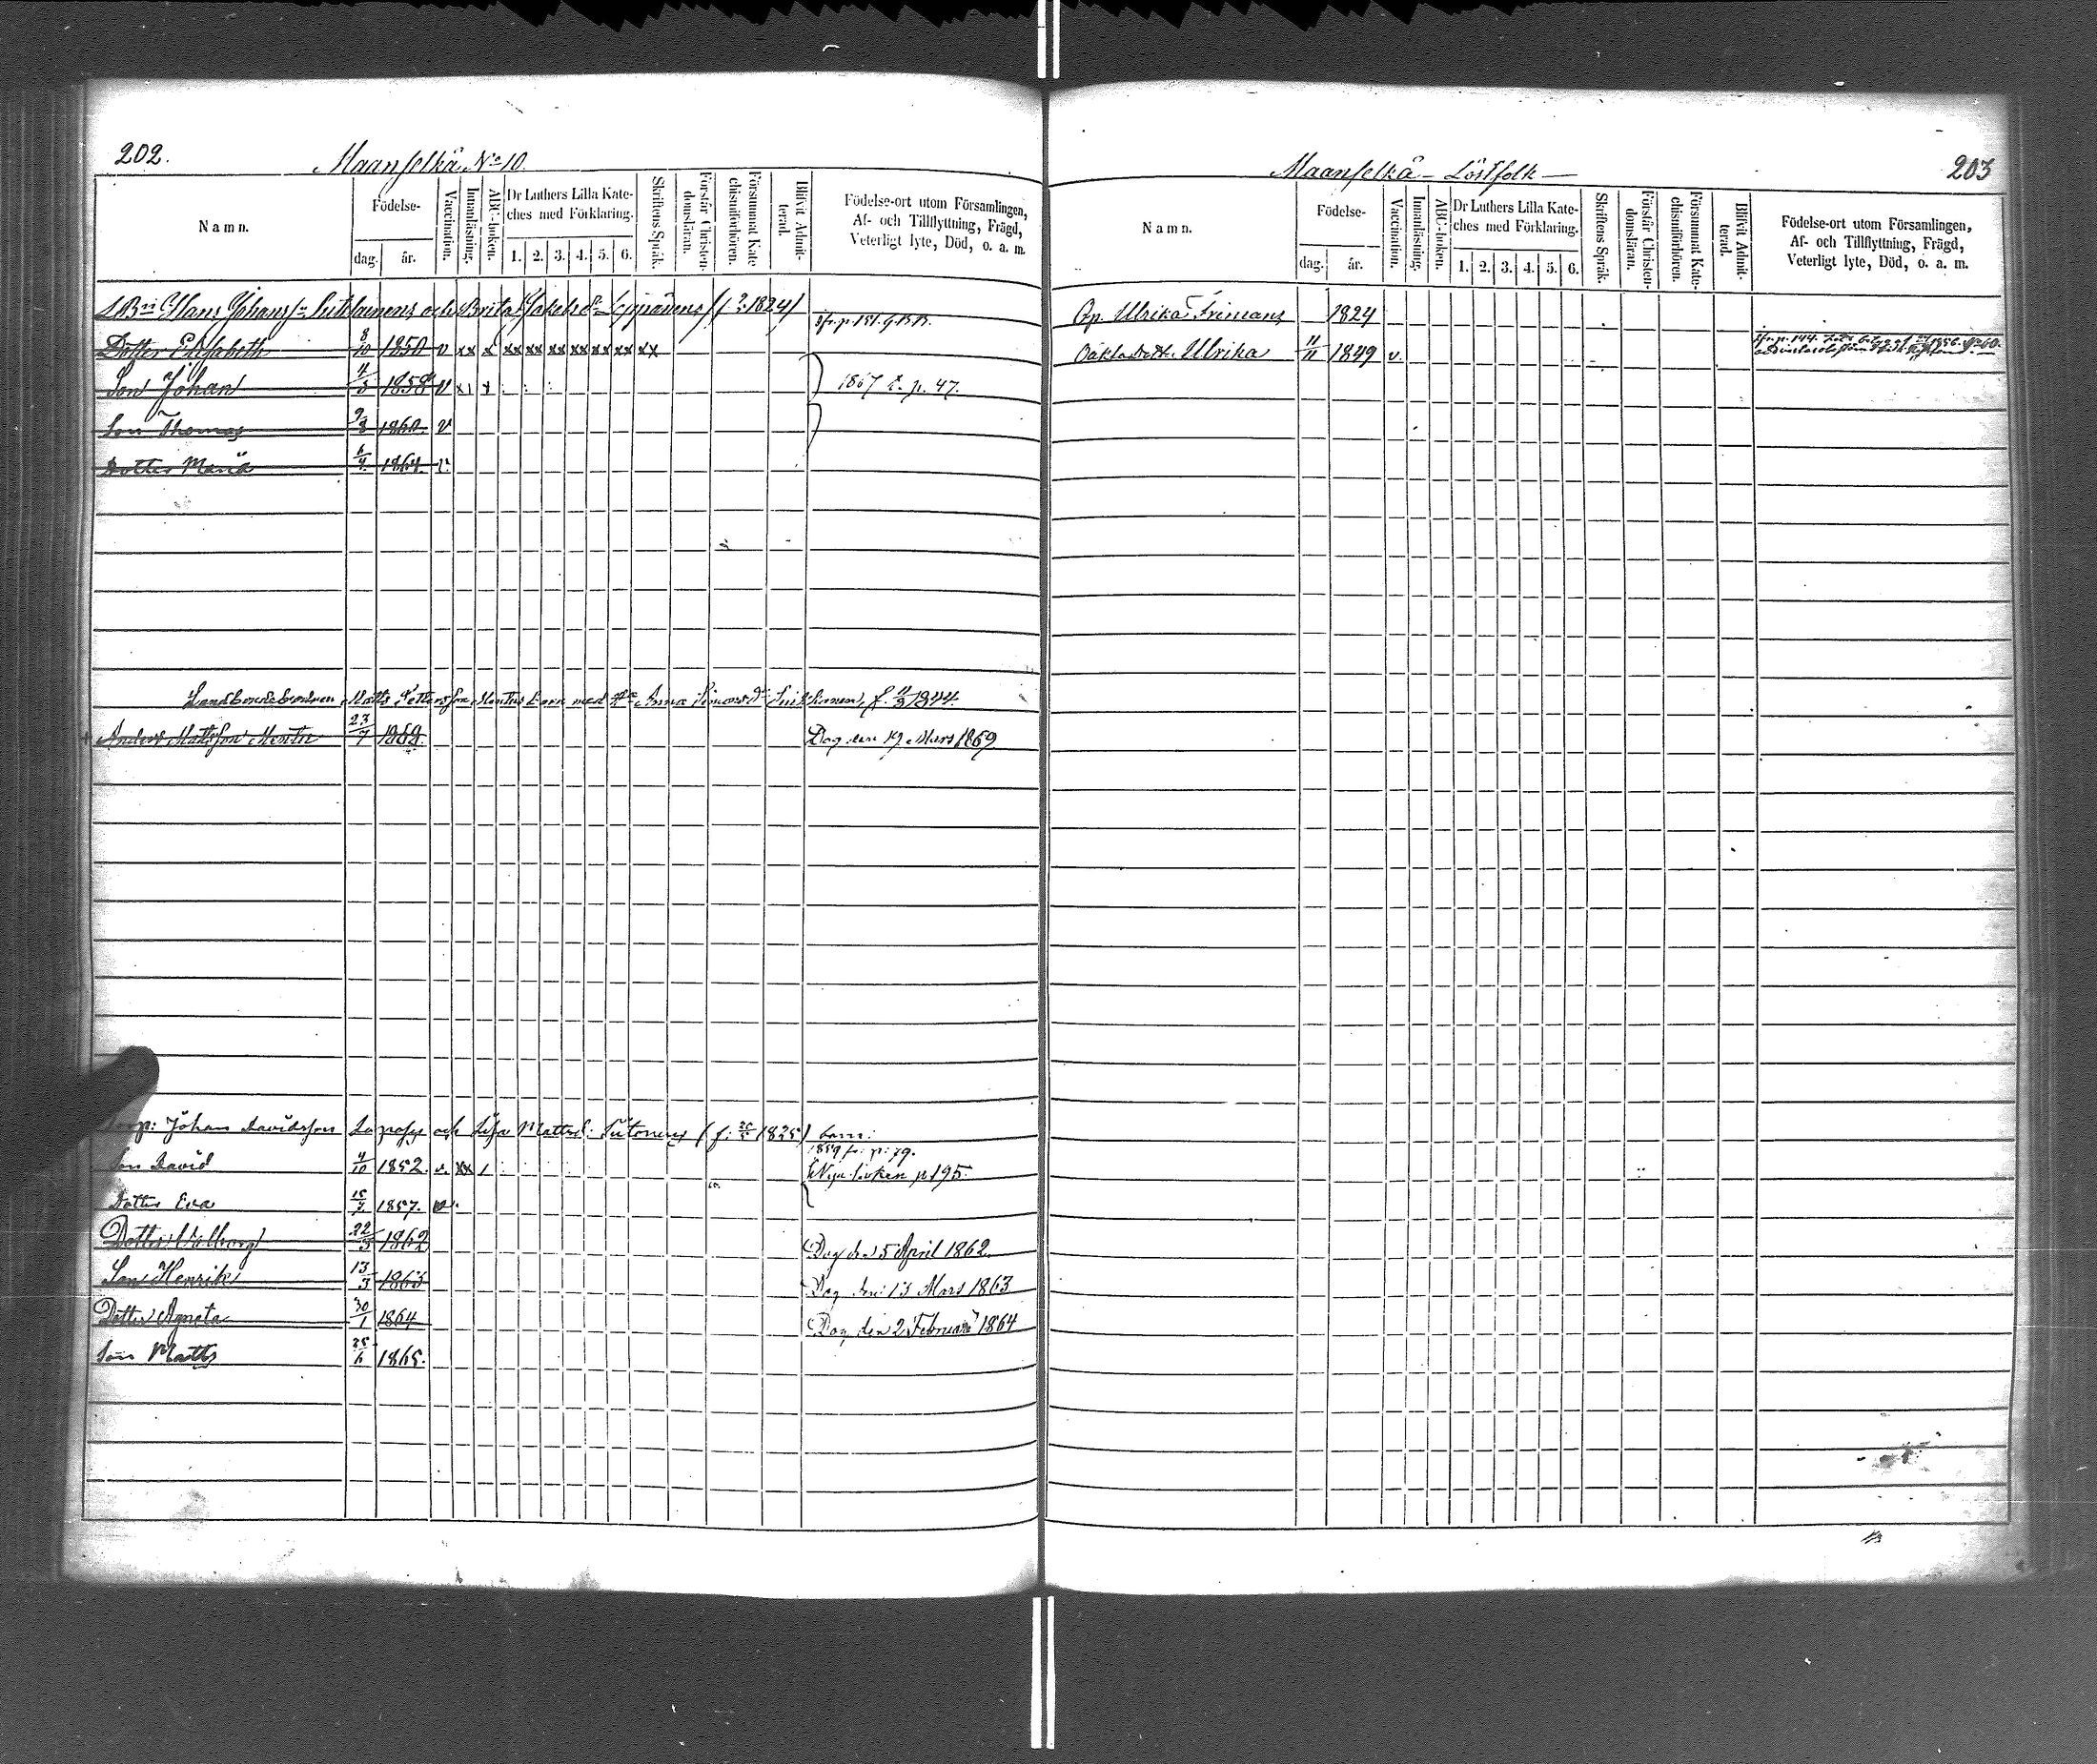 202.
Maanselkä No 10.
Namn.
Födelse-
dag.
år.
Vaccination.
Innanläsning.
ABC-boken.
Dr Luthers Lilla Kate-
ches med Förklaring.
1. 2. 3. 4. 5. 6.
Skriftens Språk.
Förstår Christen-
domsläran.
Försummat Kate
chismiförhören.
Blifvit Admit-
terad.
Födelse-ort utom Församlingen,
Af- och Tillflyttning, Frägd,
Veterligt lyte, Död, o. a. m.
Hans Johans och Brita Jakobsd:r 1824)
Dotter Elisabeth 8/10 1850 v xx x xx xx xx xx xx xx xx
Son Johan 11/5 1858 v 1867 t. p. 47.
Son Thomas 9/3 1860. v
Dotter Maria 6/4 1864. v.
Matts Petters son med Anna Simonsd:r f. 11/3 1844.
Anders Mattsson 23/7 1868. Dog den 19 Mars 1869
Torp: Johan Davidsson och Lisa Mattsd: (f: 1825) barn:
1859 fr. p: 79.
Son David 4/10 1852. v. xx 1 Nya boken p 195.
Dotter Eva 15/7 1857. v.
Dotter Valborg 22/3 1862 Dog den 5 April 1862
Son Henrik 13/3 1863 Dog den 13 Mars 1863
Dotter Agneta 30/1 1864 Dog den 2 Februari 1864
Son Matts 25/6 1865.
203
Maanselkä - Löstfolk -
Namn.
Födelse-
dag.
år.
Vaccination.
Innanläsning.
ABC-boken.
Dr Luthers Lilla Kate-
ches med Förklaring.
1. 2. 3. 4. 5. 6.
Skriftens Språk.
Förstår Christen-
domsläran.
Försummat Kate-
chismiförhören.
Blifvit Admit-
terad.
Födelse-ort utom Församlingen,
Af- och Tillflyttning, Frägd,
Veterligt lyte, Död, o. a. m.
Ulrika Frimans 1824
Oäkta Dott. Ulrika 11/11 1849 v.